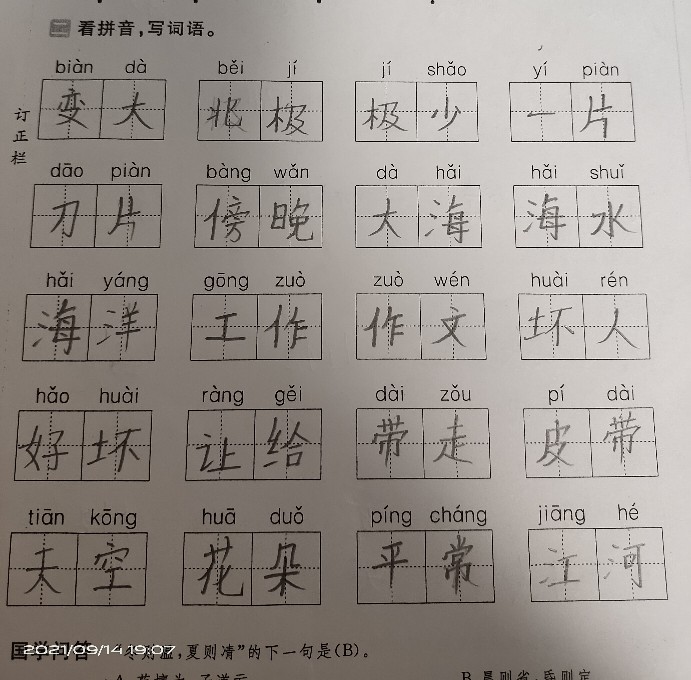 二 看拼音,写词语。
biàn dà běi jí jí shǎo yí piàn
变大 北极 极少 一片
订正栏
dāo piàn bàng wǎn dà hǎi hǎi shuǐ
刀片 傍晚 大海 海水
hǎi yáng gōng zuò zuò wén huài rén
海洋 工作 作文 坏人
hǎo huài ràng gěi dài zǒu pí dài
好坏 让给 带走 皮带
tiān kōng huā duǒ píng cháng jiāng hé
天空 花朵 平常 江河
国学问答 “冬则温,夏则凊”的下一句是(B)。
2021/09/14 19:07
B.晨则省,昏则定